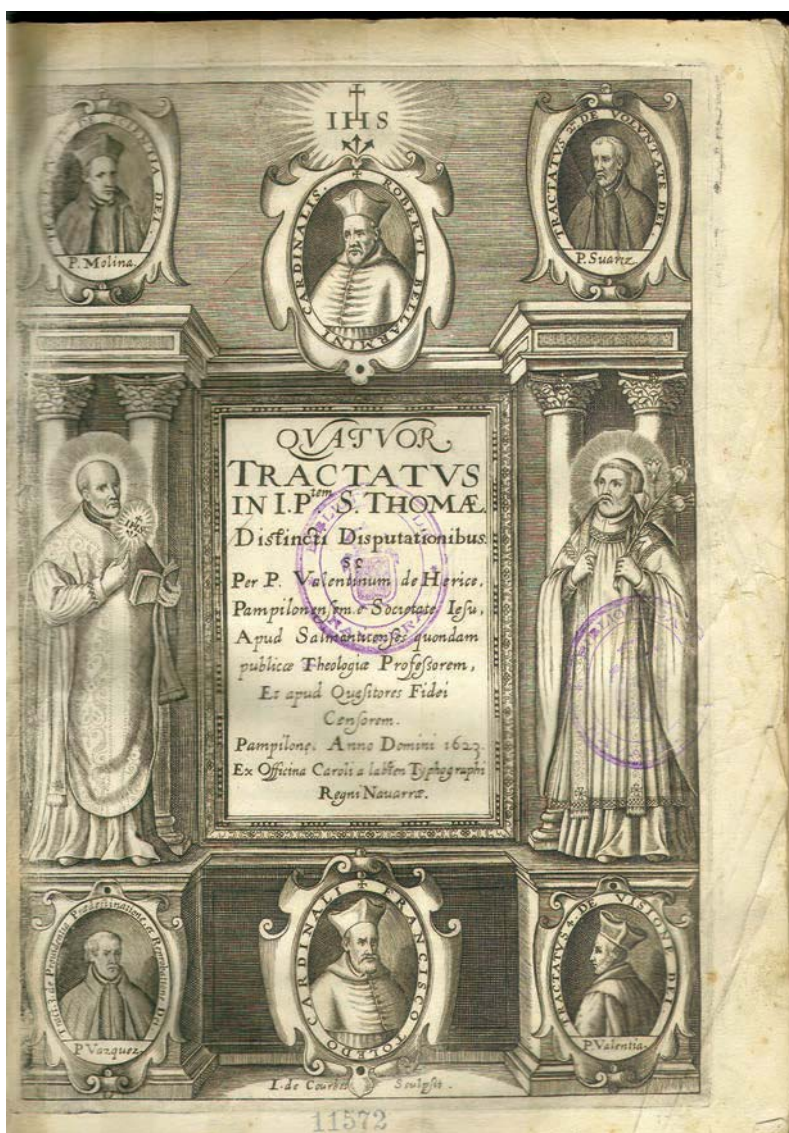 IHS
TRACTATVS 1. DE SCIENTIA DEI.
P. Molina.
CARDINALIS. ROBERTI BELLARMINI
TRACTATVS 2. DE VOLVNTATE DEI.
P. Suarez
QVATVOR
TRACTATVS
IN I.P.tem S. THOMÆ.
Distincti Disputationibus.
Per P. Valentinum de Herice,
Pampilonensem e Societate Iesu,
Apud Salmanticenses quondam
publicæ Theologiæ Professorem,
Et apud Quęsitores Fidei
Censorem.
Pampilonę. Anno Domini 1623.
Ex Officina Caroli a labàen Typhographi
Regni Nauarræ.
IHS
Tract. 3. de Prouidentia Prædestinatione, et Reprobatione Dei
P. Vazquez.
CARDINALI FRANCISCO TOLEDO
TRACTATVS 4. DE VISIONE DEI
P. Valentia.
I. de Courbes Sculpsit.
11572